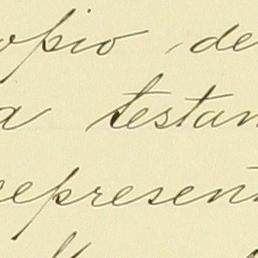 opio de
a testam
represent